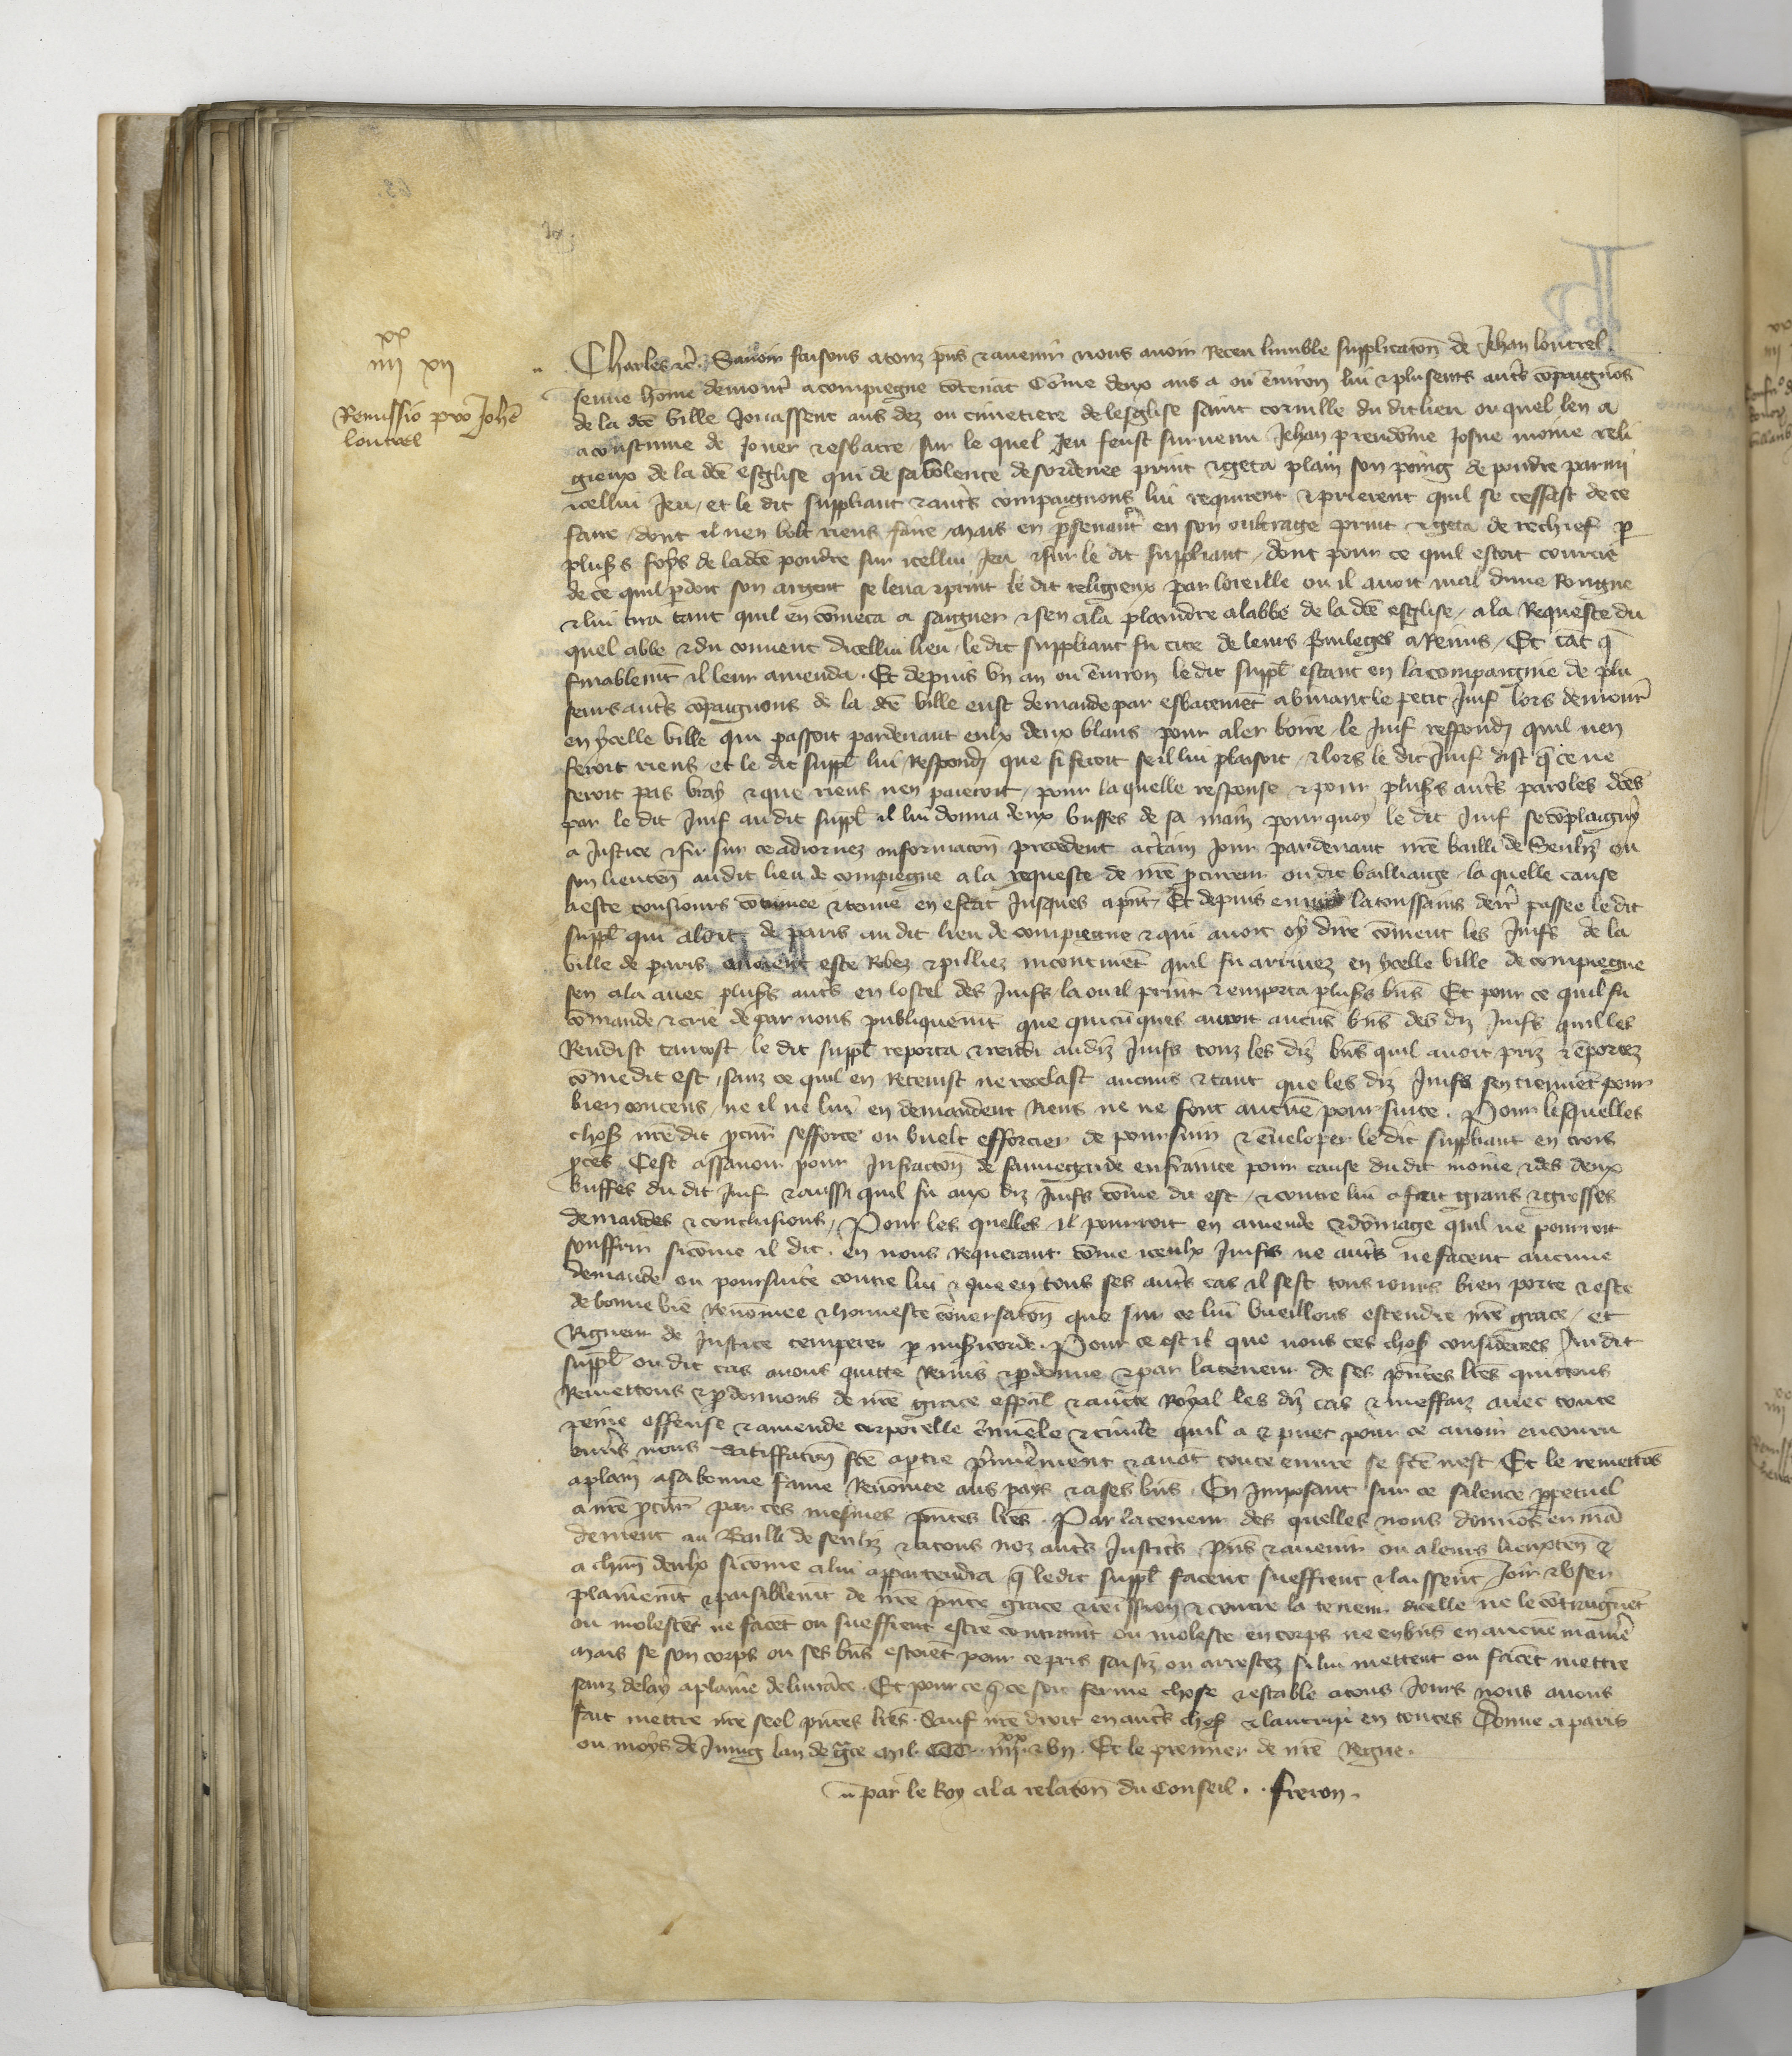 xx
iiii xii
Remissio pro Johēn
loutrel
Charles ⁊c̄. Savoir faisons a touz p̄ns ⁊ avenir nous avoir Receu humble supplicatōn de Jehan loutrel
Jeune hōme demour̄ a compiegne cōtenāt Cōme deux ans a ou ēviron lui ⁊ pluseurs aut̄s cōpaignōs
de la dc̄e ville Jouassent aus dez ou cimetiere de lesglise saint cornille du dit lieu ou quel len a
acoustume de Jouer ⁊ esbatre sur le quel Jeu feust survenu Jehan preudōme Josne moine reli
gieux de la dc̄e esglise qui de sa volente desordenee print ⁊ geta plain son poing de poudre parmi
icellui Jeu, et le dit suppliant ⁊ aut̄s compaignons lui requirent ⁊ prierent quil se cessast de ce
faire, dont il nen volt riens faire mais en p̄seuant en son oultrage print ⁊ geta de rechief p
plus̄s foys de ladc̄e poudre sur icellui Jeu ⁊ sur le dit suppliant, dont pour ce quil estoit courcie
de ce quil p̄doit son argent se leva ⁊ print le dit religieux par loreille ou il avoit mal dune Rongne
⁊ lui tira tant quil en cōmēca a saigner ⁊ sen ala plaindre a labbe de la dc̄e esglise, a la Requeste du
quel abbe ⁊ du couvent dicellui lieu, le dit suppliant fu cite de leurs p̄vileges a Reims, Et tāt q̄
finablemt̄ il leur amenda. Et depuis un an ou ēviron le dit suppl̄ estant en la compaignie de plu
seurs aut̄s cōpaignons de la dc̄e ville eust demande par esbatemēt a vinant le petit Juif lors demour̄
en ycelle ville qui passoit pardevant eulx deux blans pour aler boire, le Juif respondȷ quil nen
feroit riens, et le dit suppl̄ lui Respondȷ que si feroit seil lui plaisoit, ⁊ lors le dit Juif dist q̄ ce ne
seroit pas vray ⁊ que riens nen paieroit, pour la quelle response ⁊ pour plus̄s aut̄s paroles dc̄es
par le dit Juif au dit suppl̄ il lui donna deux buffes de sa main pour quoy le dit Juif se cōplaigny
a Justice ⁊ fu sur ce adiornez informatōn precedent a c̄tain Jour pardevant nr̄e bailli de Senliz ou
son lieuten̄ au dit lieu de compiegne a la requeste de nr̄e p̄cureur ou dit bailliaige, la quelle cause
a este tousiours cōtinuee ⁊ tenue en estat Jusques a p̄nt, Et depuis la toussains derr̄ passee le dit
suppl̄ qui aloit de paris au dit lieu de compiegne ⁊ qui avoit oy dire cōment les Juifs de la
ville de paris avoient este Robez ⁊ pilliez incontinēt quil fu arrivez en ycelle ville de compiegne
sen ala avec plus̄s aut̄s en lostel des Juifs la ou il print ⁊ emporta plus̄s biēs Et pour ce quil fu
cōmande ⁊ crie de par nous publiquemēt que quicūques auroit aucūs biēs des diz Juifs quil les
Rendist tantost, le dit suppl̄ reporta ⁊ rendi audiz Juifs touz les diz biēs quil avoit priz ⁊ ēportez
cōme dit est, sanz ce quil en Retenist ne recelast aucuns ⁊ tant que les diz Juifs sen tiennēt pour
bien contens, ne il ne lui en demandent Riens ne ne font aucūe poursuite. Pour lesquelles
chos̄ nr̄e dit p̄cur̄ sefforce ou vuelt efforcier de poursuir ⁊ ēveloper le dit suppliant en trois
p̄ces Cest assavoir pour Infractōn de sauvegarde enfrainte pour cause du dit moine ⁊ des deux
buffes du dit Juif ⁊ aussi quil fu aux diz Juifs cōme dit est, ⁊ contre lui a fait grans ⁊ grosses
demandes ⁊ conclusions, Pour les quelles il pourroit en amende ⁊ dōmage quil ne pourroit
souffrir sicōme il dit. en nous Requerant cōme iceulx Juifs ne aut̄s ne facent aucune
demande ou poursuite contre lui ⁊ que en tous ses aut̄s cas il sest tous iours bien porte ⁊ este
de bonne vie Renōmee ⁊ honneste cōversatōn que sur ce lui vueillons estendre nr̄e grace, et
Rigueur de Justice temperer p mis̄icorde. Pour ce est il que nous ces chos̄ considerees Au dit
suppl̄ ou dit cas avons quitte Remis ⁊ p̄donne ⁊ par la teneur de ses p̄ntes lr̄es quittons
Remettons ⁊ p̄donnons de nr̄e grace esp̄al ⁊ auct̄e Royal les diz cas ⁊ meffaiz avec toute
peine offense ⁊ amende corporelle c̄minele ⁊ civile quil a ⁊ puet pour ce avoir encouru
envers nous Satisffaciōn fc̄e a p̄tie p̄mierement ⁊ avāt toute euvre se fc̄e nest Et le remettōs
a plain a sa bonne fame Renōmee aus pays ⁊ a ses biēs. En Imposant sur ce silence p̄petuel
a nr̄e p̄cur̄ par ces mesmes p̄ntes lr̄es. Par la teneur des quelles nous donnōs en mā
dement au Bailli de senliz ⁊ a tous noz aut̄s Justic̄s p̄ns ⁊ avenir ou a leurs lieuxten̄ ⁊
a chūn deulx sicōme a lui appartendra q̄ le dit suppl̄ facent sueffrent ⁊ laissent Joir ⁊ user
plainemēt ⁊ paisiblemt̄ de nr̄e p̄nte grace ⁊ remission ⁊ contre la teneur dicelle ne le cōtraignēt
ou molestēt ne facēt ou sueffrent estre contraint ou moleste en corps ne en biēs en aucūe maniē
Mais se son corps ou ses biēs estoiēt pour ce pris saisiz ou arrestez si lui mettent ou facēt mettre
sanz delay a plaine delivrāce. Et pour ce q̄ ce soit ferme chose ⁊ estable a tous Jours nous avons
fait mettre nr̄e seel p̄ntes lr̄es. Sauf nr̄e droit en aut̄s chos̄ ⁊ lautruy en toutes Donne a paris
ou moys de Juing lan de gr̄ce Mil. CCC. iiii xx ⁊ un. Et le premier de nr̄e Regne.
par le Roy a la relatōn du Conseil. freron.